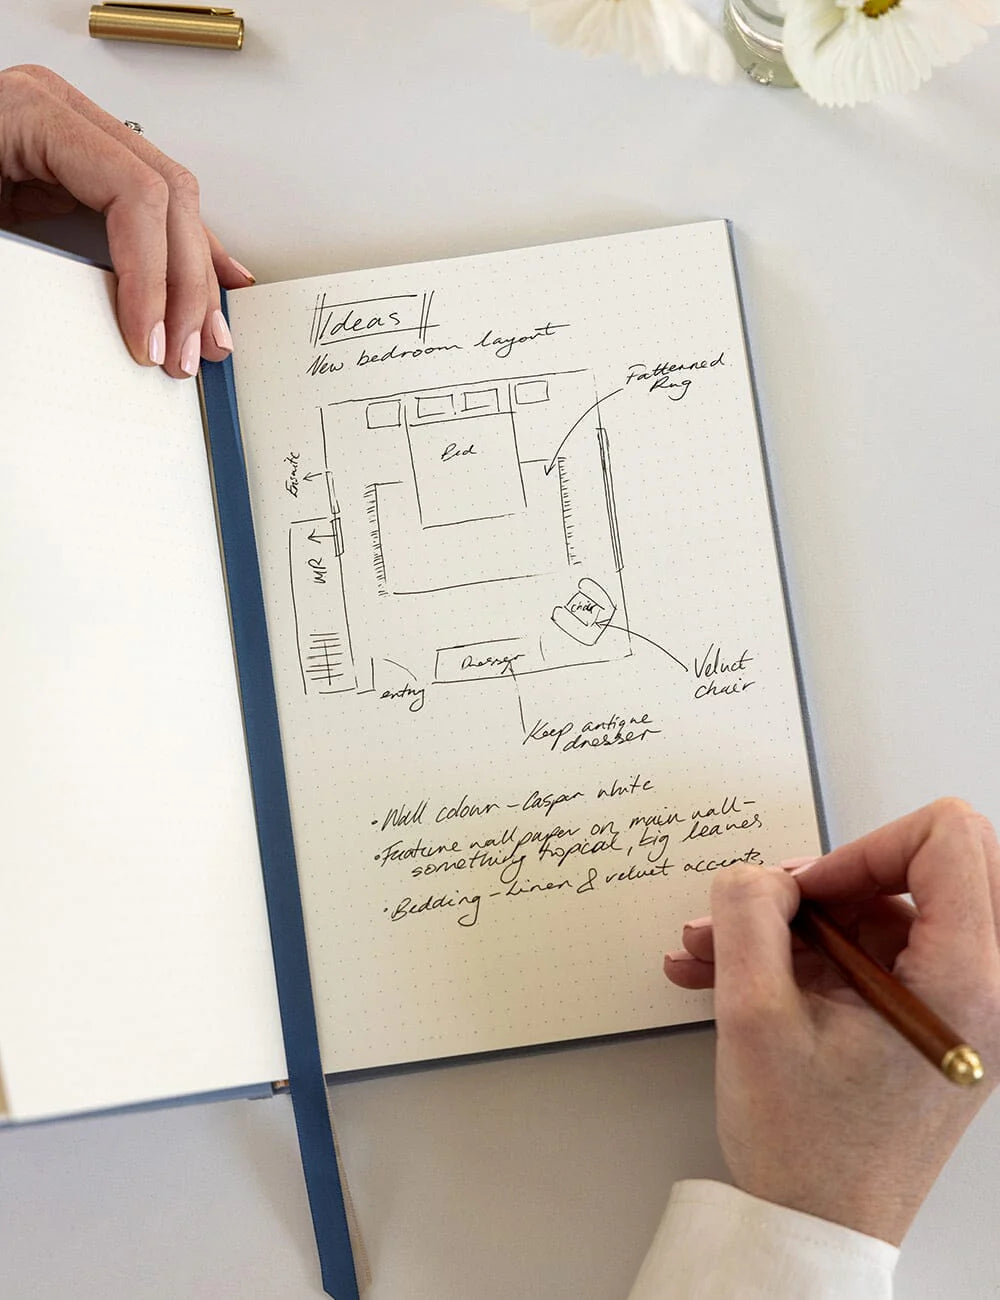 Ideas
New bedroom layout
Patterned
Rug
Bed
Ensuite
WR
Chair
Dresser
entry
Velvet
chair
Keep antique
dresser
• Wall colour – Caspar white
• Feature wallpaper on main wall –
something tropical, big leaves
• Bedding – Linen & velvet accents